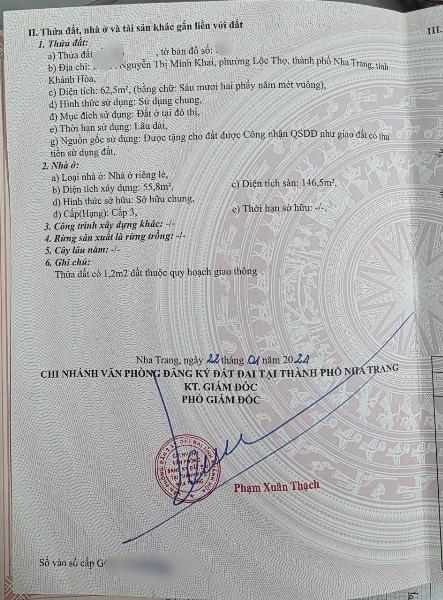 II. Thửa đất, nhà ở và tài sản khác gắn liền với đất
III.
1. Thửa đất:
a) Thửa đất , tờ bản đồ số:
b) Địa chỉ: Nguyễn Thị Minh Khai, phường Lộc Thọ, thành phố Nha Trang, tỉnh
Khánh Hòa,
c) Diện tích: 62,5m², (bằng chữ: Sáu mươi hai phẩy năm mét vuông),
d) Hình thức sử dụng: Sử dụng chung,
đ) Mục đích sử dụng: Đất ở tại đô thị,
e) Thời hạn sử dụng: Lâu dài,
g) Nguồn gốc sử dụng: Được tặng cho đất được Công nhận QSDĐ như giao đất có thu
tiền sử dụng đất,
2. Nhà ở:
a) Loại nhà ở: Nhà ở riêng lẻ,
b) Diện tích xây dựng: 55,8m², c) Diện tích sàn: 146,5m²,
d) Hình thức sở hữu: Sở hữu chung,
đ) Cấp(Hạng): Cấp 3, e) Thời hạn sở hữu: -/-,
3. Công trình xây dựng khác: -/-
4. Rừng sản xuất là rừng trồng: -/-
5. Cây lâu năm: -/-
6. Ghi chú:
Thửa đất có 1,2m2 đất thuộc quy hoạch giao thông
Nha Trang, ngày 22 tháng 01 năm 2024
CHI NHÁNH VĂN PHÒNG ĐĂNG KÝ ĐẤT ĐAI TẠI THÀNH PHỐ NHA TRANG
KT. GIÁM ĐỐC
PHÓ GIÁM ĐỐC
CHI NHÁNH
VĂN PHÒNG
ĐĂNG KÝ ĐẤT ĐAI
Phạm Xuân Thạch
Số vào sổ cấp G